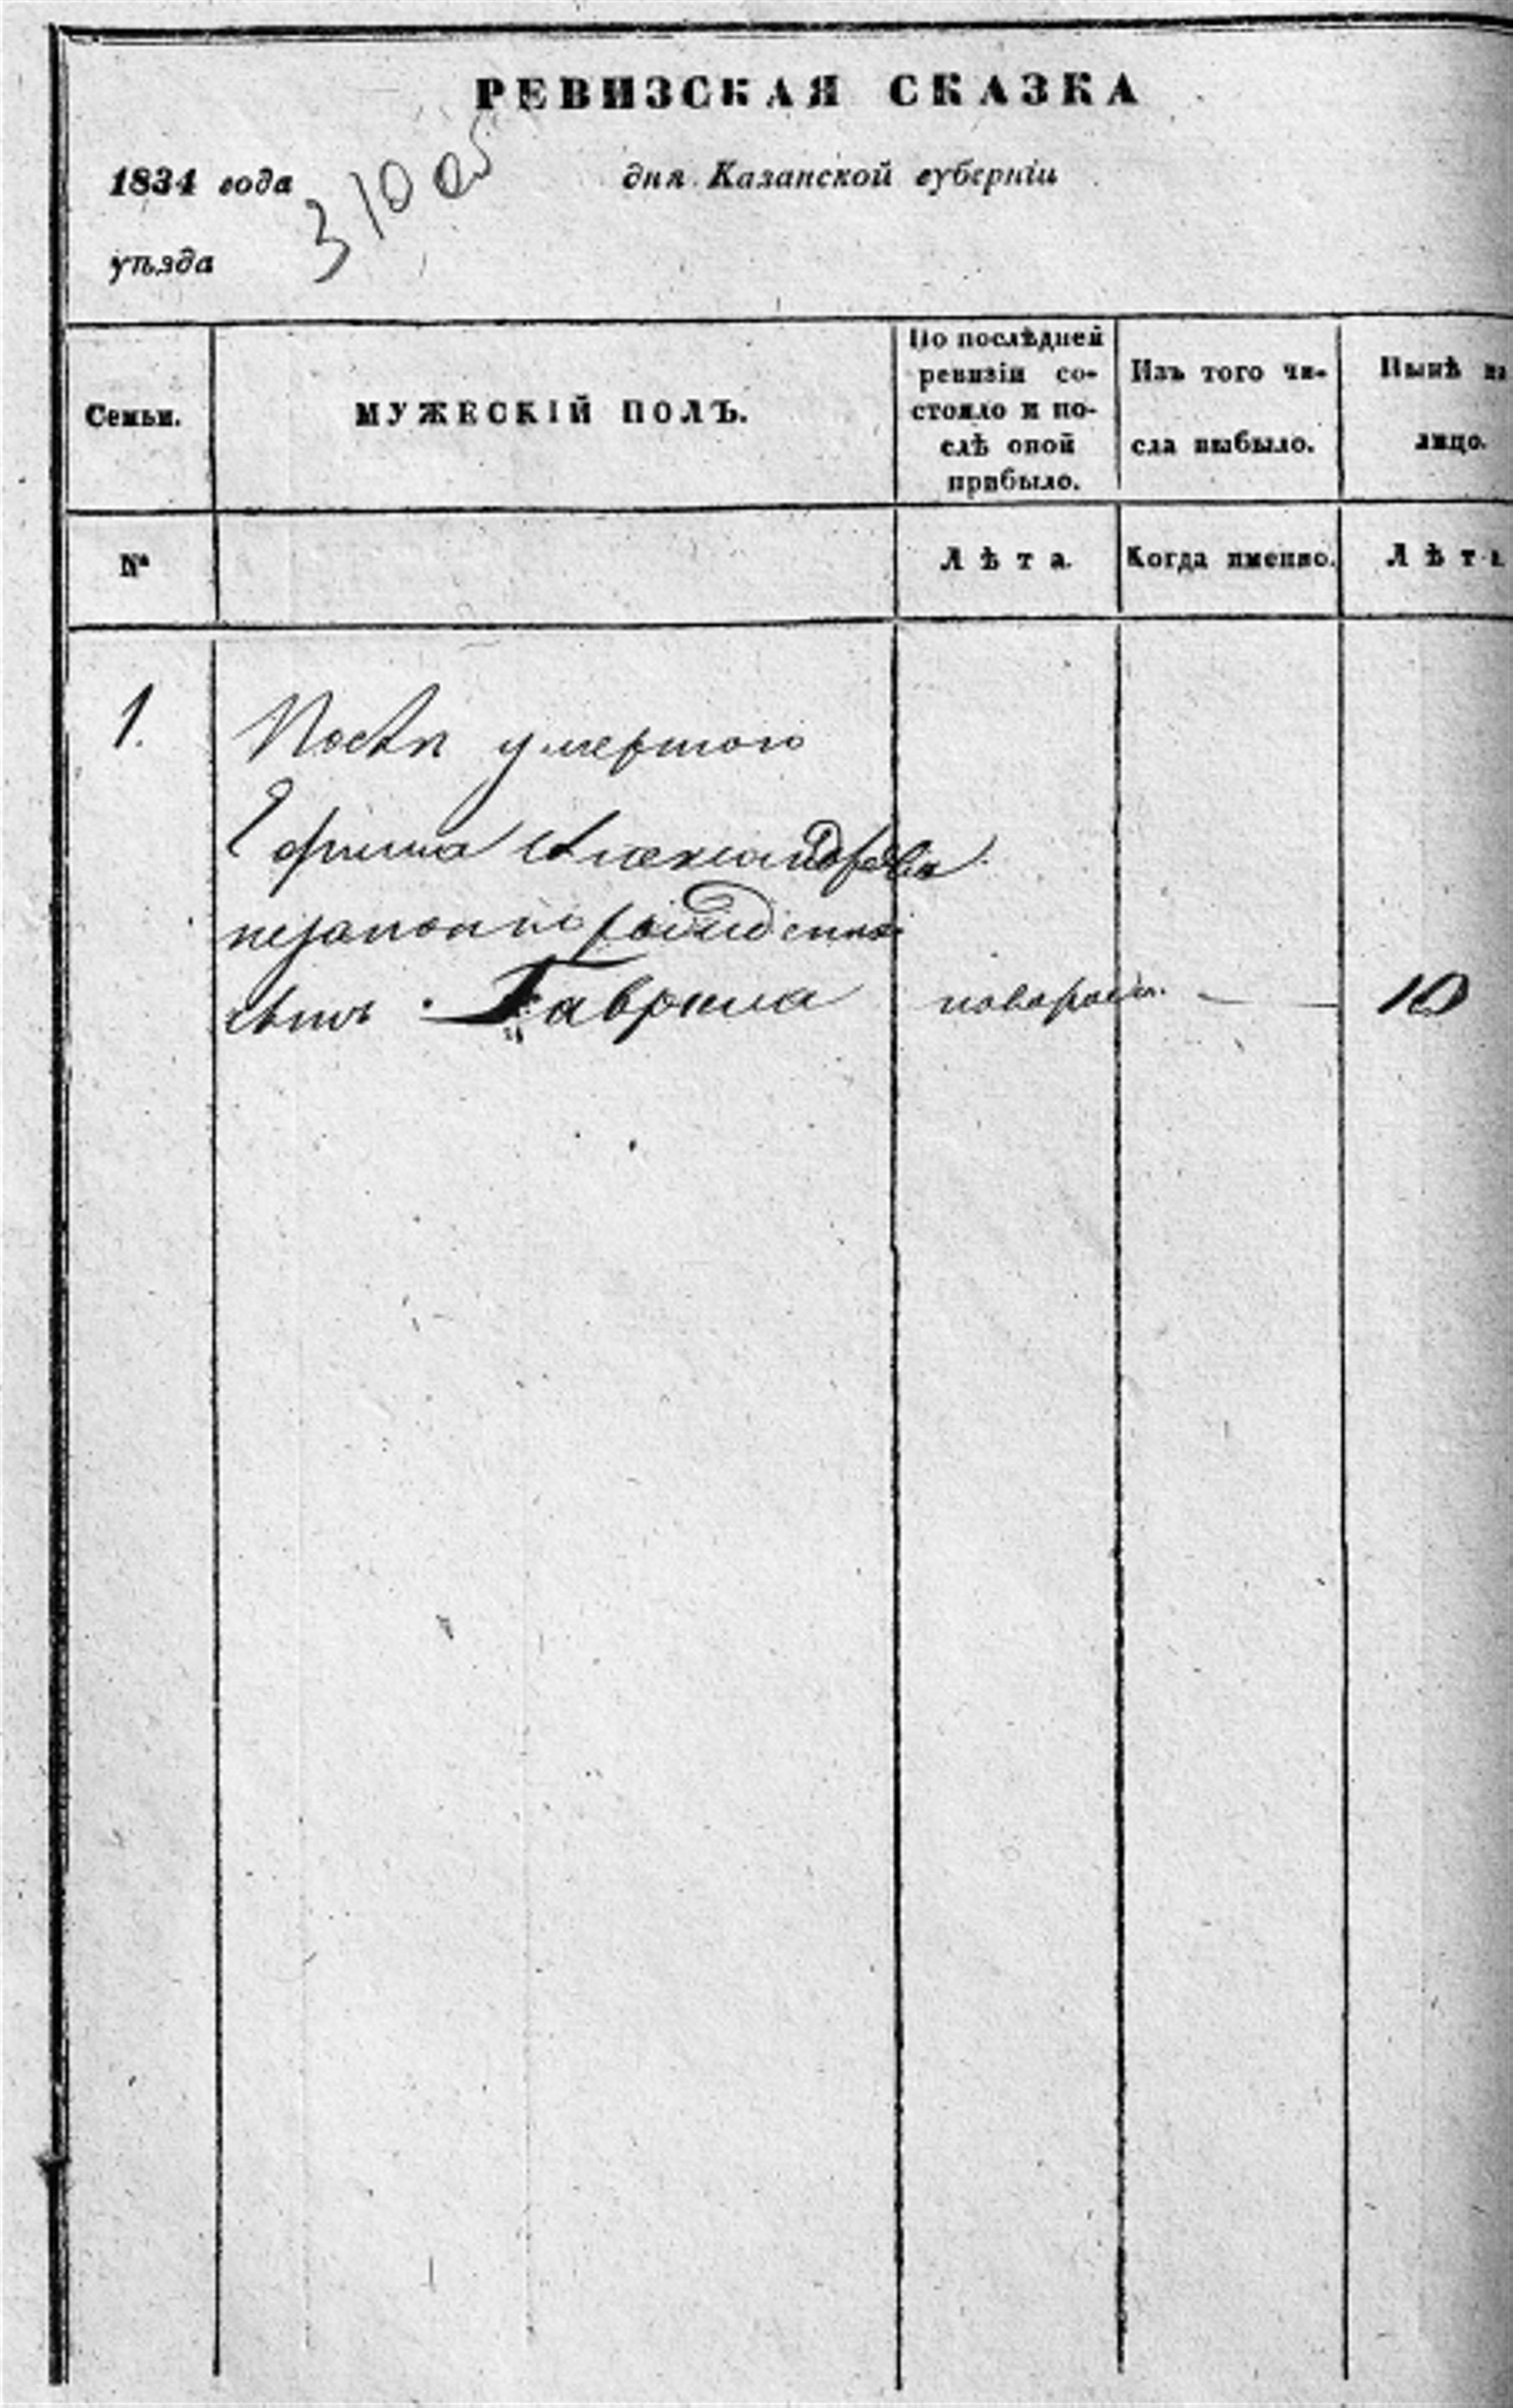 РЕВИЗСКАЯ СКАЗКА
1834 года дня Казанской губерніи
уѣзда
310 об
Семьи.
МУЖЕСКІЙ ПОЛЪ.
По послѣдней
ревизіи со-
стояло и по-
слѣ оной
прибыло.
Изъ того чи-
сла выбыло.
Нынѣ на
лицо.
№
Лѣта.
Когда именно.
Лѣта
1.
Послѣ умершаго
Ефима Александрова
незаконно рожденной
сынъ Гаврила новорож. — 10